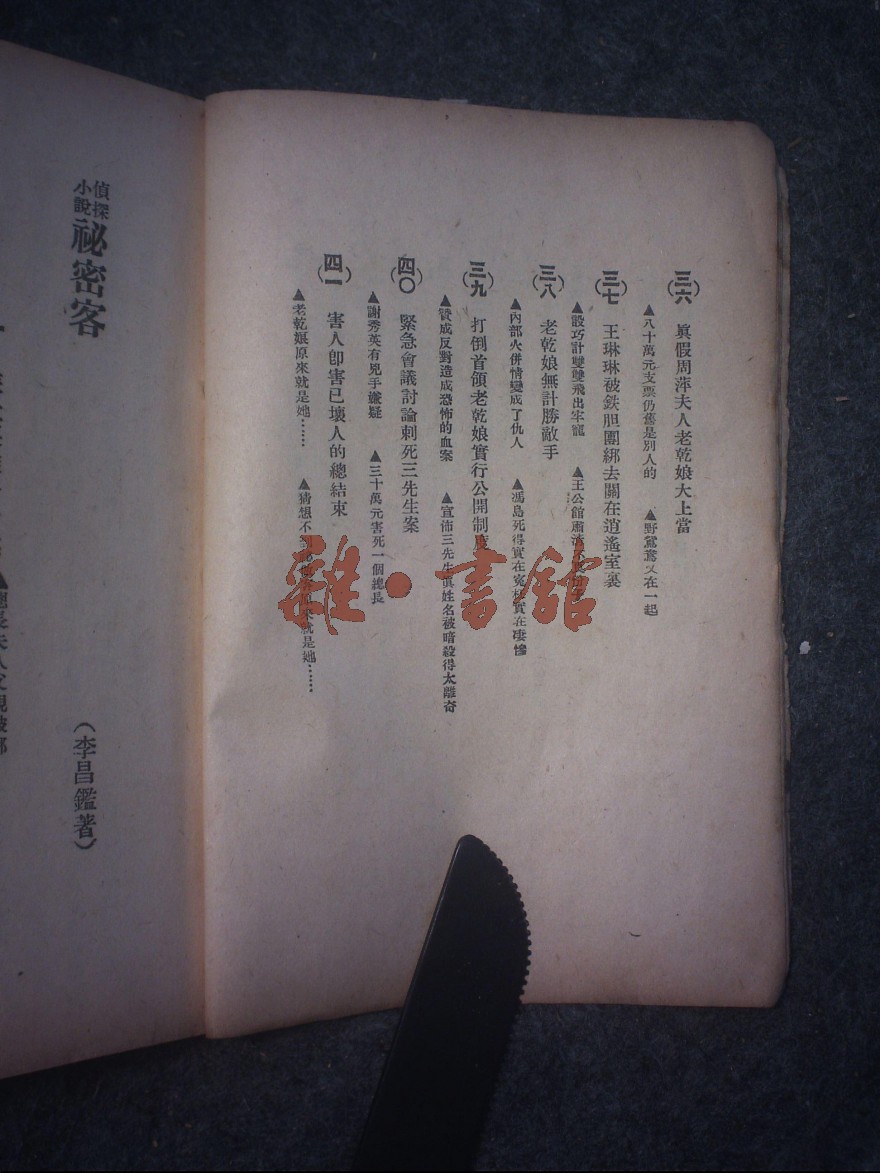 (三六) 眞假周萍夫人老乾娘大上當
▲八十萬元支票仍舊是別人的 ▲野鴛鴦又在一起
(三七) 王琳琳被鉄胆團綁去關在逍遙室裏
▲設巧計雙雙飛出牢籠 ▲王公館肅清
(三八) 老乾娘無計勝敵手
▲內部火併情變成了仇人 ▲馮島死得實在冤枉實在凄慘
(三九) 打倒首領老乾娘實行公開制度
▲贊成反對造成恐怖的血案 ▲宣佈三先生眞姓名被暗殺得太離奇
(四〇) 緊急會議討論刺死三先生案
▲謝秀英有兇手嫌疑 ▲三十萬元害死一個總長
(四一) 害人卽害已壞人的總結束
▲老乾娘原來就是她…… ▲猜想不到
原來就是她……
偵探小說 祕密客
(李昌鑑著)
雜·書舘